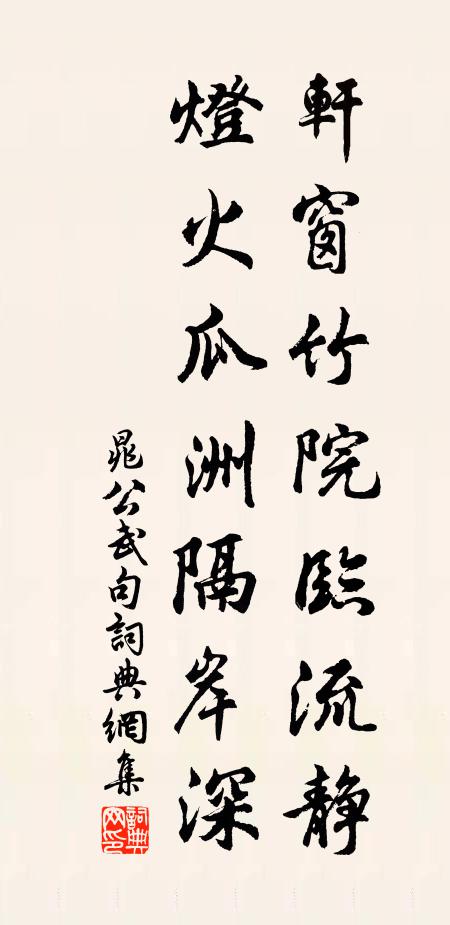 軒窗竹院臨流靜
燈火瓜洲隔岸深
晁公武句詞典網集
詞典